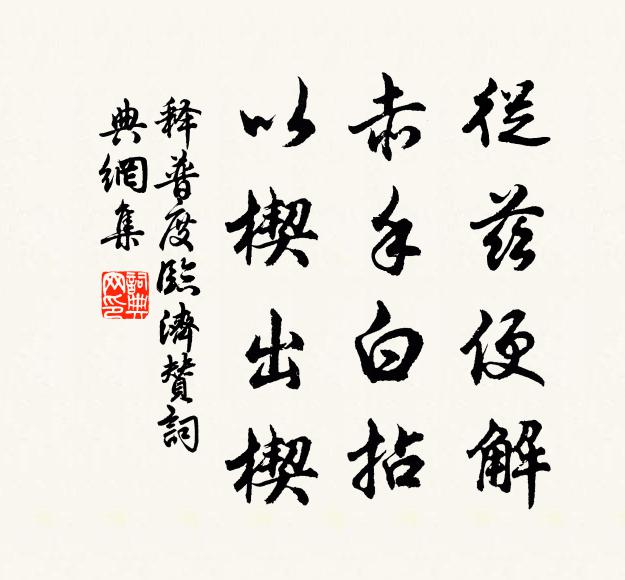 從茲便解
赤手白拈
以楔出楔
释普度臨濟贊詞
典網集
詞典
网印